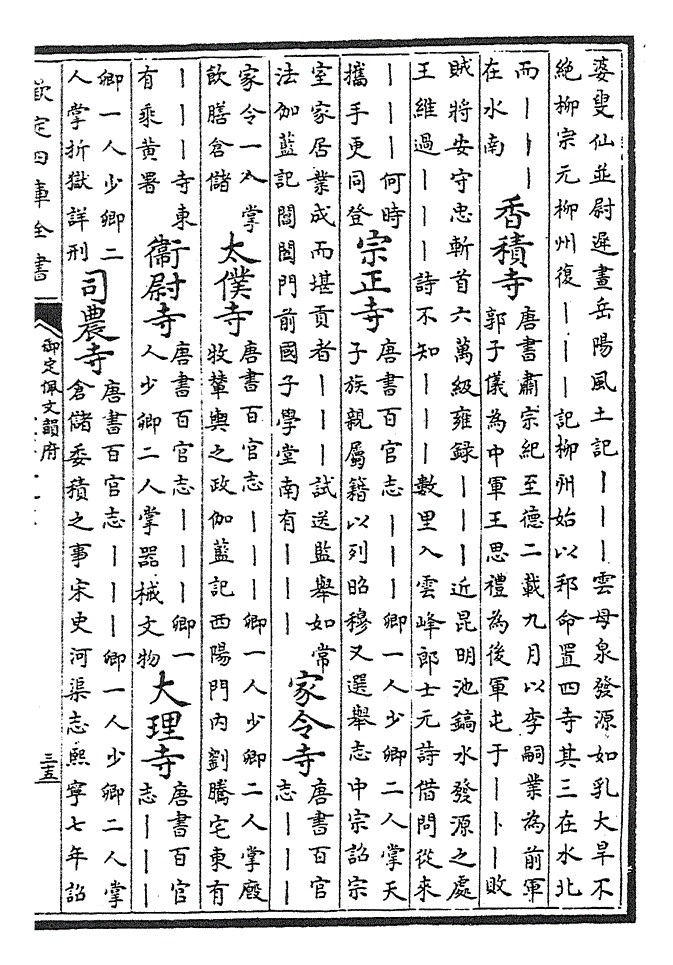 婆叟仙並尉遲畫岳陽風土記丨丨丨雲母泉發源如乳大旱不
絶柳宗元柳州復丨丨丨記柳州始以邦命置四寺其三在水北
而丨丨丨
在水南
香積寺
唐書肅宗紀至德二載九月以李嗣業為前軍
郭子儀為中軍王思禮為後軍屯于丨卜丨敗
賊將安守忠斬首六萬級雍録丨丨丨近昆明池鎬水發源之處
王維過丨丨丨詩不知丨丨丨數里入雲峰郎士元詩借問從來
丨丨丨何時
攜手更同登
宗正寺
唐書百官志丨丨丨卿一人少卿二人掌天
子族親屬籍以列昭穆又選舉志中宗詔宗
室家居業成而堪貢者丨丨丨試送監舉如常
法伽藍記閶闔門前國子學堂南有丨丨丨
家令寺
唐書百官
志丨丨丨
家令一人掌
飲膳倉儲
太僕寺
唐書百官志丨丨丨卿一人少卿二人掌廏
牧輦輿之政伽藍記西陽門内劉騰宅東有
丨丨丨寺東
有乘黄署
衞尉寺
唐書百官志丨丨丨卿一
人少卿二人掌器械文物
大理寺
唐書百官
志丨丨丨
卿一人少卿二
人掌折獄詳刑
司農寺
唐書百官志丨丨丨卿一人少卿二人掌
倉儲委積之事宋史河渠志熙寧七年詔
欽定四庫全書
御定佩文韻府
三五